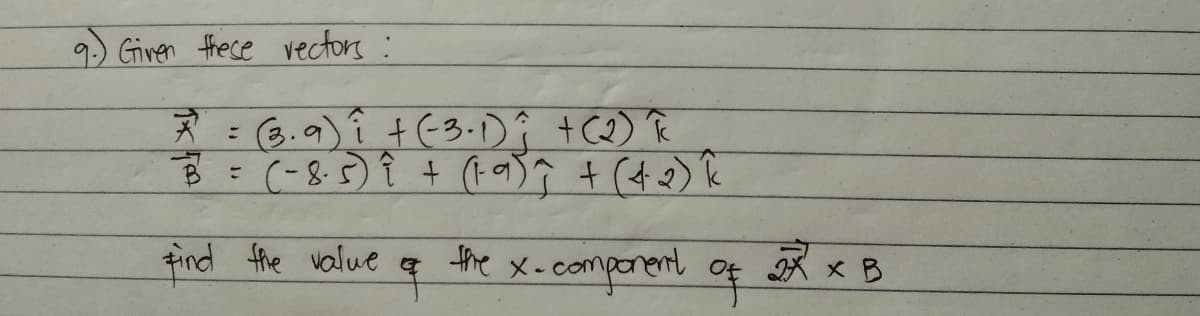 9.) Given these vectors :
A⃗ = (3.9) î + (-3.1) ĵ + (2) k̂
B⃗ = (-8.5) î + (1.9) ĵ + (4.2) k̂
find the value of the x-component of 2A⃗ x B